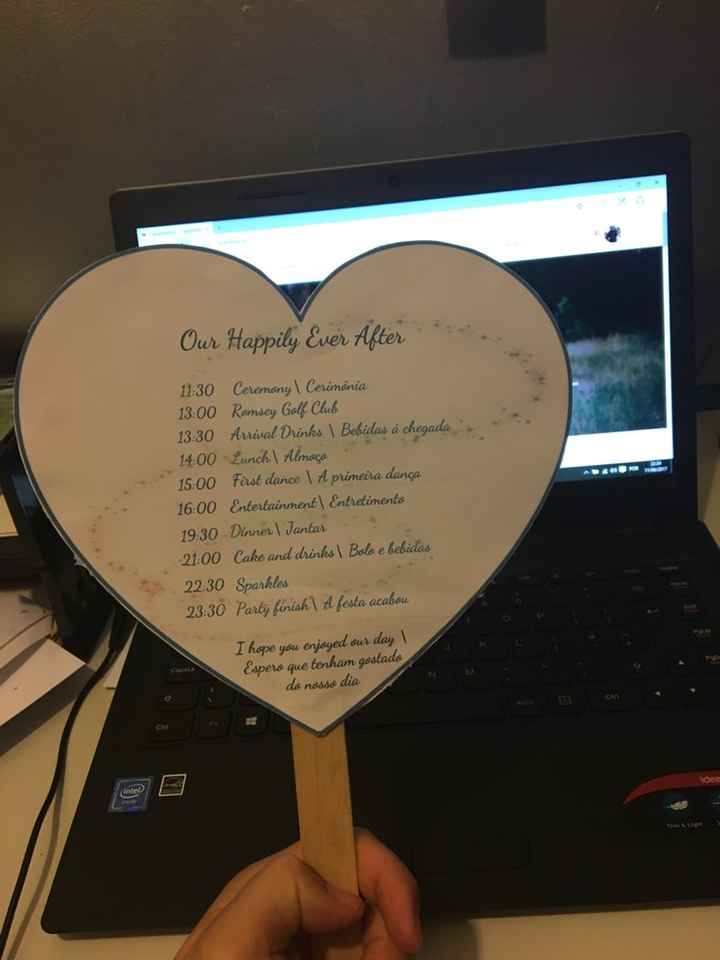 Our Happily Ever After
11:30 Ceremony \ Cerimónia
13:00 Romsey Golf Club
13:30 Arrival Drinks \ Bebidas á chegada
14:00 Lunch \ Almoço
15:00 First dance \ A primeira dança
16:00 Entertainment \ Entretimento
19:30 Dinner \ Jantar
21:00 Cake and drinks \ Bolo e bebidas
22:30 Sparkles
23:30 Party finish \ A festa acabou
I hope you enjoyed our day \
Espero que tenham gostado
do nosso dia
intel
Ctrl